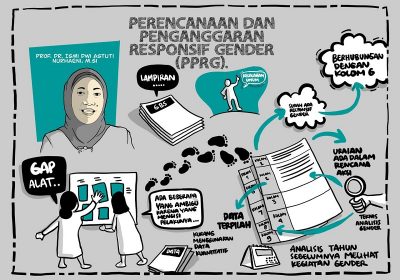 PERENCANAAN DAN
PENGANGGARAN
RESPONSIF GENDER
(PPRG).
PROF. DR. ISMI DWI ASTUTI
NURHAENI, M.SI
LAMPIRAN...
GBS
BERHUBUNGAN
DENGAN
KOLOM 6
SUDAH ADA
GENDER
URAIAN
ADA DALAM
RENCANA
AKSI
GAP
ALAT..
ADA BEBERAPA
YANG AMBIGU
KARENA YANG
MENGISI
PELAKUNYA...
KURANG
MENGGUNAKAN
DATA
KUANTITATIF
DATA
DATA
TERPILAH
TEKNIS
ANALISIS
GENDER
ANALISIS TAHUN
SEBELUMNYA MELIHAT
KEGIATAN GENDER